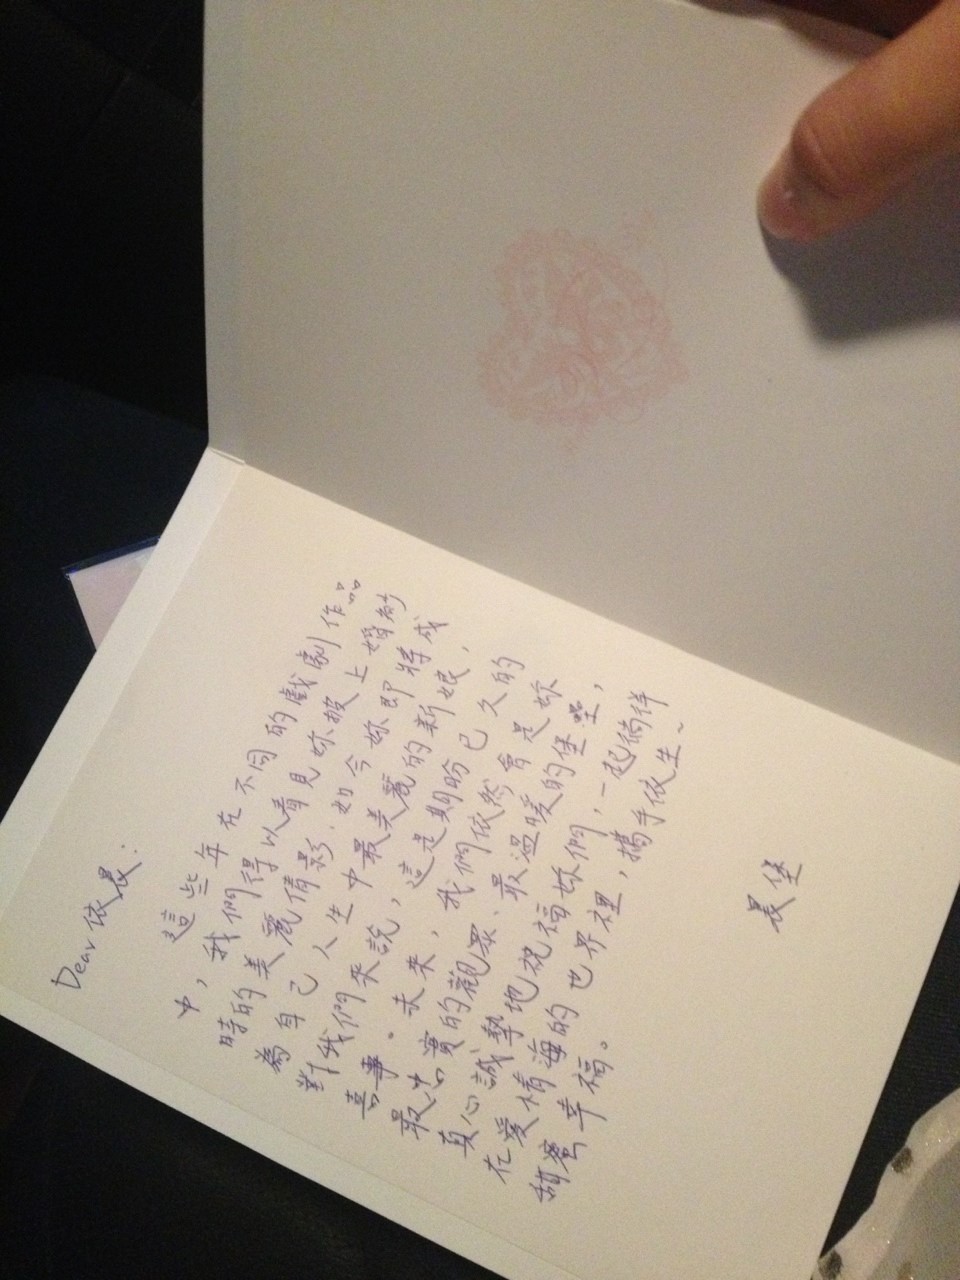 Dear 依晨：
這些年在不同的戲劇作品
中，我們得以看見妳披上婚紗
時的美麗倩影，如今妳即將成
為自己人生中最美麗的新娘，
對我們來說，這是期盼已久的
喜事。未來，我們依然會是妳
最忠實的觀眾、最溫暖的堡壘，
真心誠摯地祝福妳們，一起徜徉
在愛情海的世界裡，攜手依生~
甜蜜幸福。
晨堡